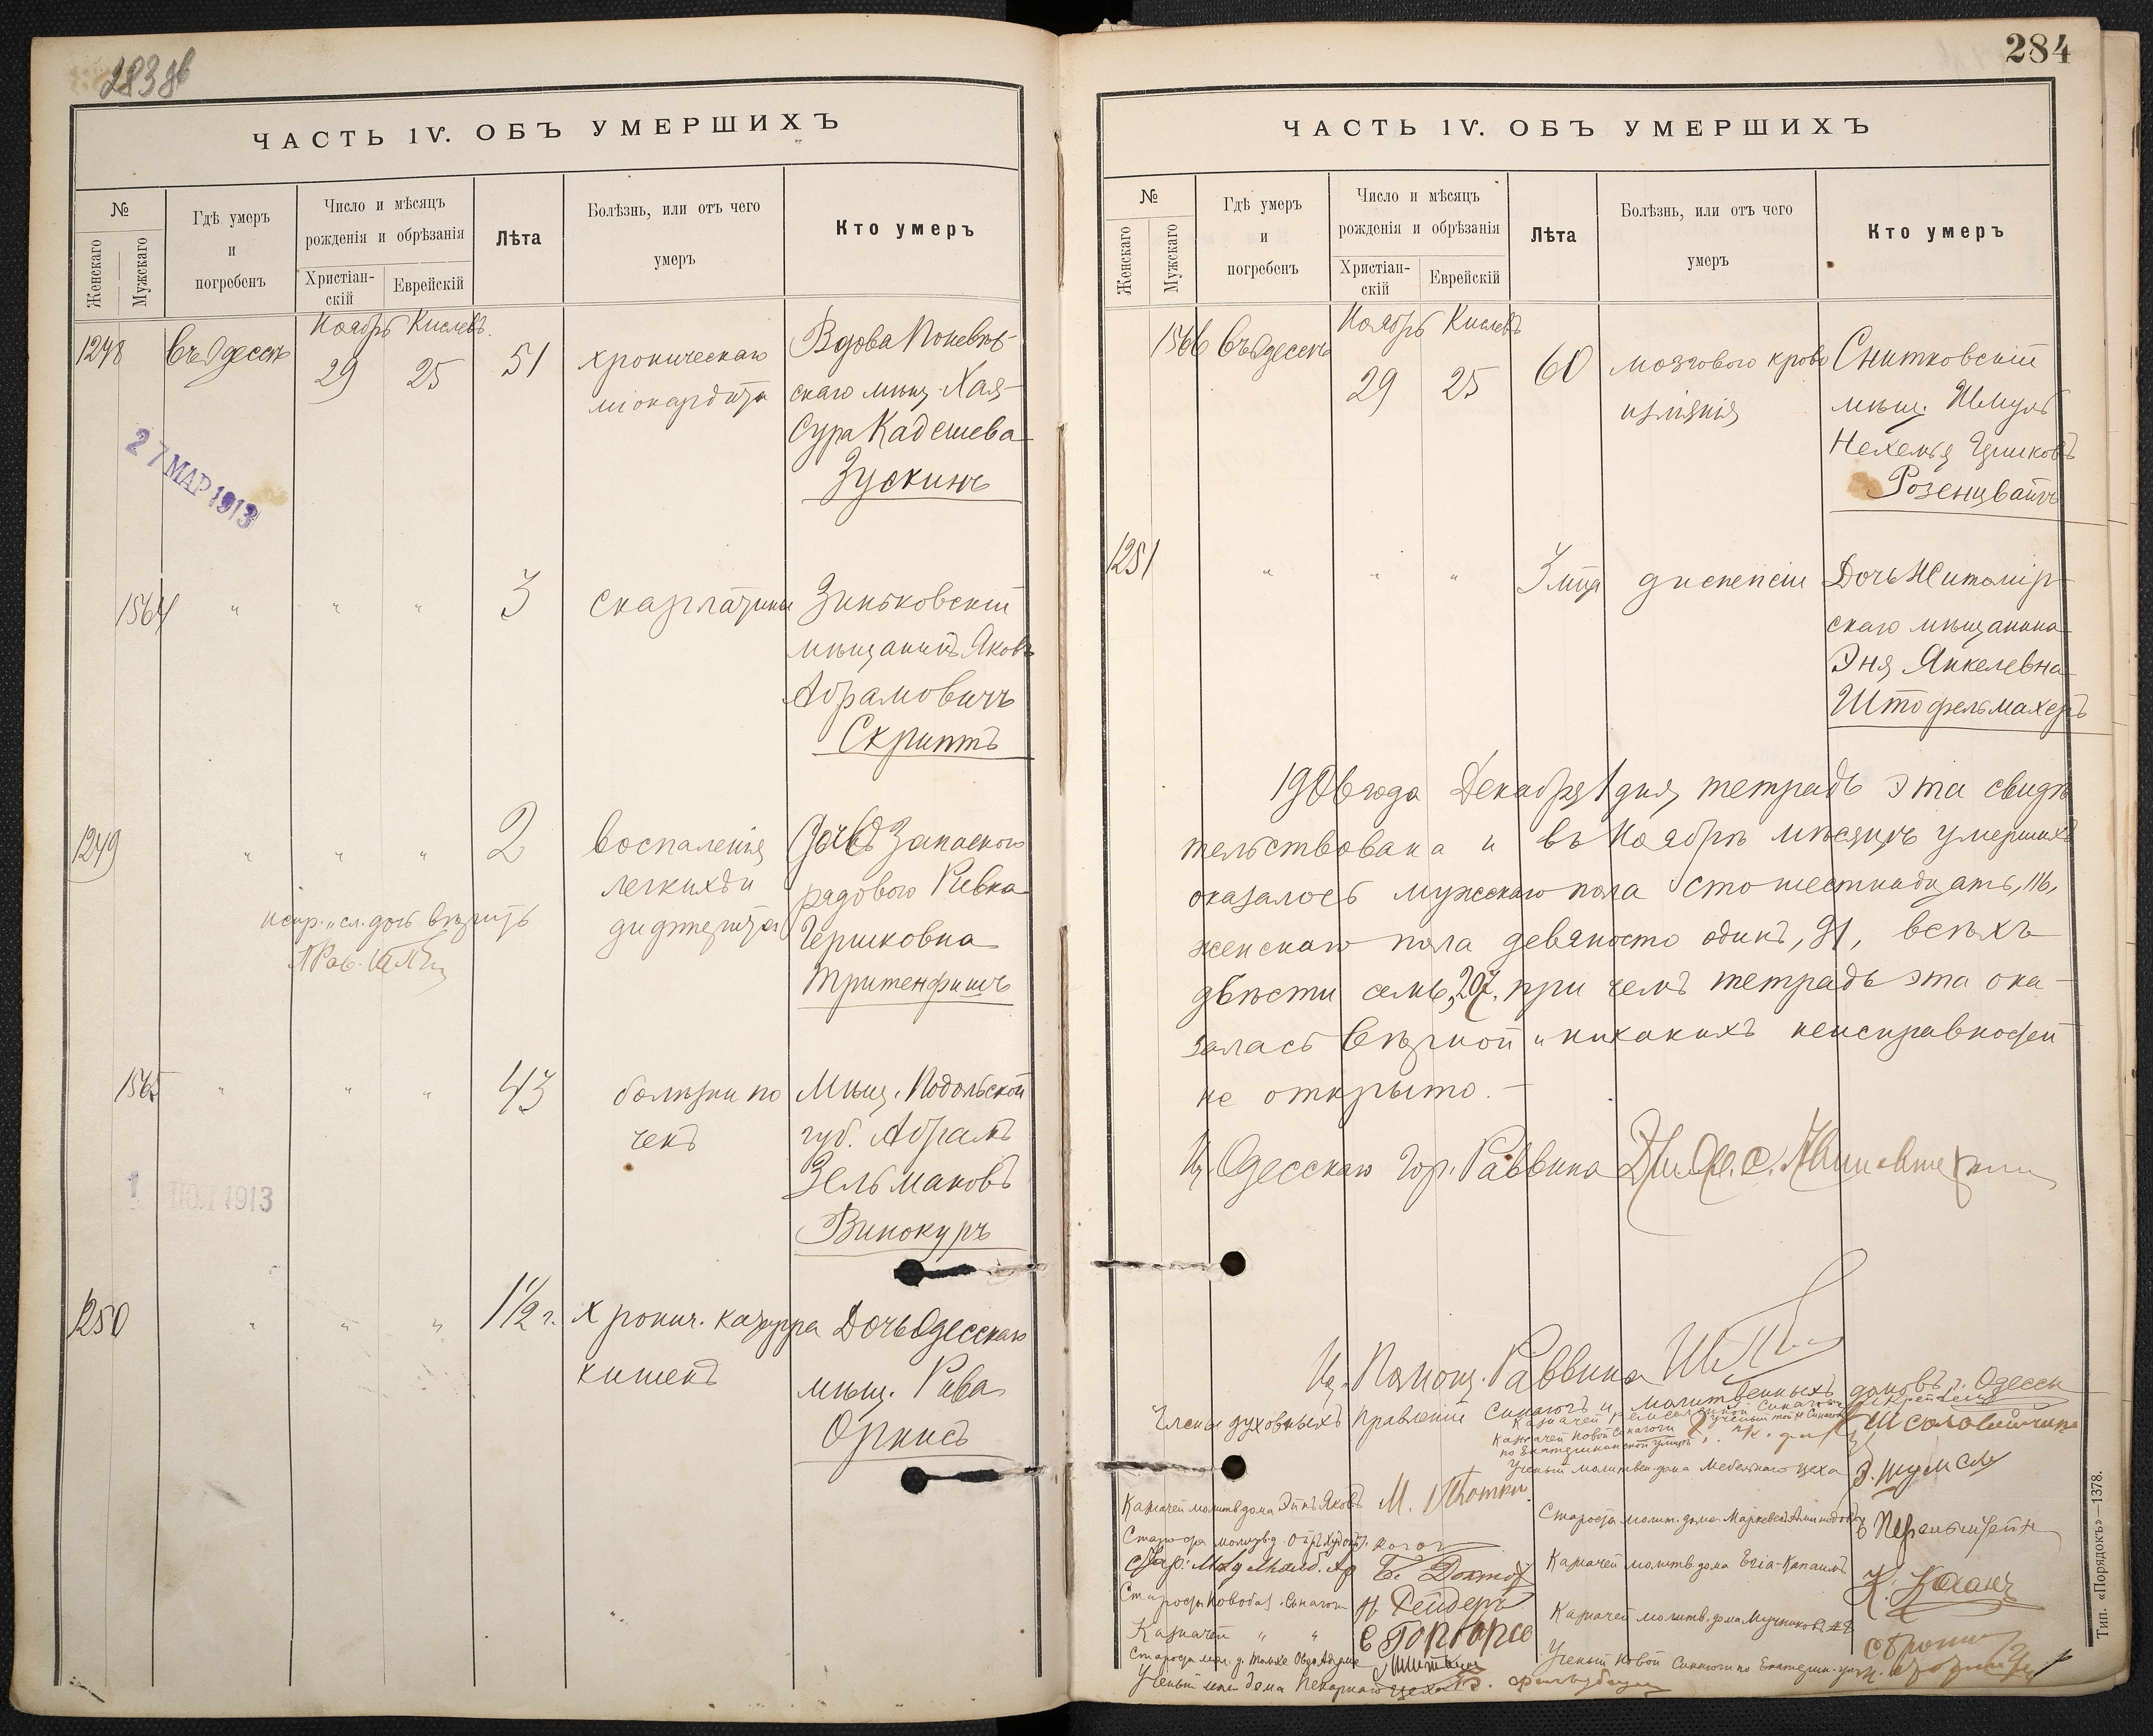 283 об
ЧАСТЬ IV. ОБЪ УМЕРШИХЪ
№
Женскаго
Мужскаго
Гдѣ умеръ
и
погребенъ
Число и мѣсяцъ
рожденія и обрѣзанія
Христіан-
скій
Еврейскій
Лѣта
Болѣзнь, или отъ чего
умеръ
Кто умеръ
Ноябрь Кислевъ.
1248 Въ Одессѣ 29 25 51 хроническаго
міокардита
Вдова Поневѣж-
скаго мѣщ. Хая-
Сура Кадешева
Зускинъ
27 МАР 1913
1564 " " " 3 скарлатины
Зиньковскій
мѣщанинъ Яковъ
Абрамовичъ
Скриптъ
1249 " " " 2 воспаленія
легкихъ и
дифтерита
Дочь Запаснаго
рядового Ривка
Гершковна
Тритенфишъ
испр. сл. дочь вѣрить
1565 " " " 43 болѣзни по
чекъ
Мѣщ. Подольской
губ. Абрамъ
Зельмановъ
Винокуръ
1913
1250 " " " 1 1/2 г. Хронич. катарра
кишекъ
Дочь Одесскаго
мѣщ. Рива
284
ЧАСТЬ IV. ОБЪ УМЕРШИХЪ
№
Женскаго
Мужскаго
Гдѣ умеръ
и
погребенъ
Число и мѣсяцъ
рожденія и обрѣзанія
Христіан-
скій
Еврейскій
Лѣта
Болѣзнь, или отъ чего
умеръ
Кто умеръ
Ноябрь Кислевъ
1566 Въ Одессѣ 29 25 60 мозгового крово
изліянія
Снитковскій
мѣщ. Шмуль
Нехемья
Розенцвайгъ
1251 " " " 3 мца диспепсіи
Дочь Житомір-
скаго мѣщанина
Эня Янкелевна
Штофельмахеръ
1906 года Декабря 1 дня, тетрадь эта свидѣ
тельствована и въ Ноябрѣ мѣсяцѣ умершихъ
оказалось мужскаго пола сто шестнадцать, 116,
женскаго пола девяносто одинъ, 91, всѣхъ
двѣсти семь, 207, при чемъ тетрадь эта ока-
залась вѣрной и никакихъ неисправностей
не открыто. —
И. Одесскаго Гор. Раввина
И. Помощ. Раввина
Члены духовныхъ правленій Синагогъ и молитвенныхъ домовъ г. Одессы
Казначей Новой Синагоги
по Екатерининской улицѣ
Ученый молитвен. дома Мебельнаго цеха
Казначей молитв. дома Эйнъ Яковъ
Староста молит. дома
Казначей молитв. дома
К. Коганъ
Старосты Новобаз. Синагоги
Казначей " "
Казначей молитв. дома
Ученый Новой Синагоги по Екатерин. ул.
Ученый дома Пекарнаго цеха
Тип. «Порядокъ»—1378.